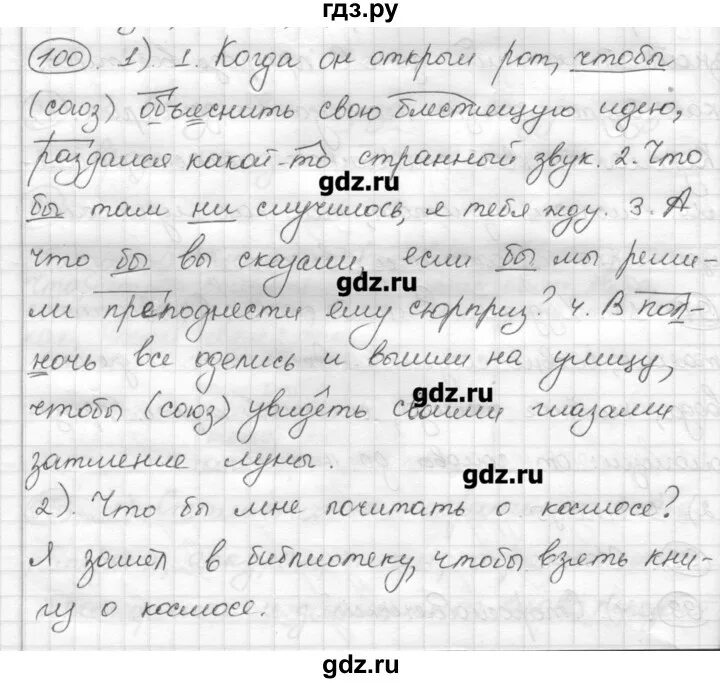 гдз.ру
100 1). 1. Когда он открыл рот, чтобы
(союз) объяснить свою блестящую идею,
раздался какой-то странный звук. 2. Что
gdz.ru
бы там ни случилось, я тебя жду. 3. А
что бы вы сказали, если бы мы реши-
gdz.ru
ли преподнести ему сюрприз? 4. В пол-
ночь все оделись и вышли на улицу,
gdz.ru
чтобы (союз) увидеть своими глазами
затмение луны.
gdz.ru
2). Что бы мне почитать о космосе?
Я зашёл в библиотеку, чтобы взять кни-
гу о космосе.
gdz.ru